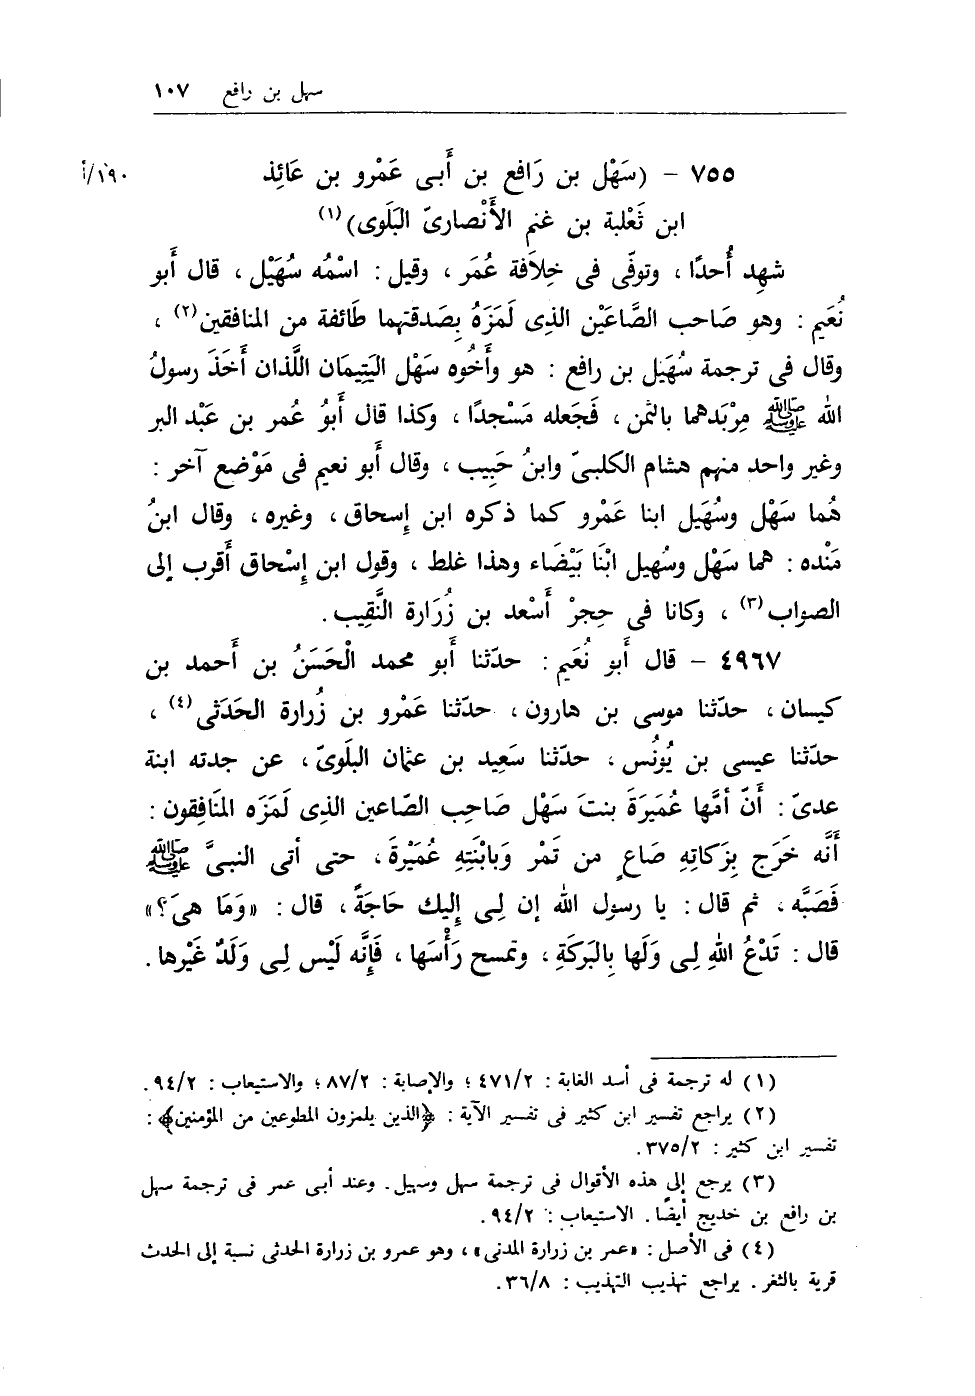 سهل بن رافع ١٠٧
٧٥٥ - (سَهْل بن رَافع بن أَبى عَمْرو بن عَائِذ ١٩٠/أ
ابن ثَعْلبة بن غنم الأَنْصارىّ البَلَوى)(١)
شهِد أُحدًا ، وتوفّى فى خِلاَفة عُمَر ، وقيل : اسْمُه سُهَيْل ، قال أَبو
نُعَيم : وهو صَاحب الصَّاعَيْن الذِى لَمَزَهُ بِصَدقتهما طَائفة من المنافقين(٢) ،
وقال فى ترجمة سُهَيل بن رافع : هو وأَخُوه سَهْل اليَتِيمَان اللَّذان أَخَذَ رسولُ
الله ﷺ مِرْبَدهما بالثمن ، فَجَعله مَسْجدًا ، وكذا قال أَبوُ عُمر بن عَبْد البر
وغير واحد منهم هشام الكلبىّ وابنُ حَبِيب ، وقال أَبو نعيم فى مَوْضع آخر :
هُما سَهْل وسُهَيل ابنا عَمْرو كما ذكره ابن إِسحاق ، وغيره ، وقال ابنُ
مَنْده : هما سَهْل وسُهيل ابْنَا بَيْضَاء وهذا غلط ، وقول ابن إِسْحاق أَقرب إلى
الصواب(٣) ، وكانا فى حِجرْ أَسْعد بن زُرَارة النَّقِيب .
٤٩٦٧ - قال أَبو نُعَيم : حدّثنا أَبو محمد الْحَسَنُ بن أَحمد بن
كيسان ، حدّثنا موسى بن هارون ، حدّثنا عَمْرو بن زُرارة الحَدَثى(٤) ،
حدّثنا عيسى بن يُونُس ، حدّثنا سَعِيد بن عثمان البلَوىّ ، عن جدته ابنة
عدىّ : أَنّ أمَّها عُمَيرَةَ بنتَ سَهْل صَاحِب الصّاعين الذِى لَمَزَه المنَافِقون :
أَنَّه خَرَج بِزَكاتِهِ صَاعٍ من تَمْر وَبابْنَتِهِ عُمَيْرةَ ، حتى أتى النبىَّ ﷺ
فَصَبَّه ، ثم قال : يا رسول الله إن لِى إِليك حَاجَةً ، قال : «وَمَا هىَ؟»
قال : تَدْعُ اللهِ لِى وَلَها بِالبَركَةِ ، وتمسح رَأْسَها ، فَإِنَّه لَيْس لِى وَلَدٌ غَيْرها .
(١) له ترجمة فى أسد الغابة : ٤٧١/٢ ؛ والإصابة : ٨٧/٢ ؛ والاستيعاب : ٩٤/٢ .
(٢) يراجع تفسير ابن كثير فى تفسير الآية : ﴿الذين يلمزون المطوعين من المؤمنين﴾ :
تفسير ابن كثير : ٣٧٥/٢ .
(٣) يرجع إلى هذه الأقوال فى ترجمة سهل وسهيل . وعند أبى عمر فى ترجمة سهل
بن رافع بن خديج أيضًا . الاستيعاب : ٩٤/٢ .
(٤) فى الأصل : «عمر بن زرارة المدنى» ، وهو عمرو بن زرارة الحدثى نسبة إلى الحدث
قرية بالثغر . يراجع تهذيب التهذيب : ٣٦/٨ .